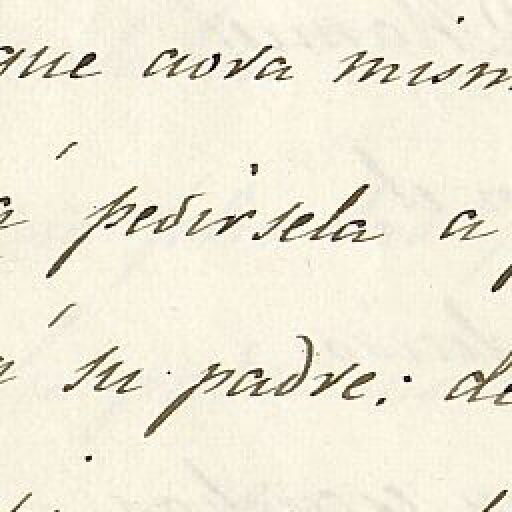 que aora mism
á pedirsela a
á su padre: de